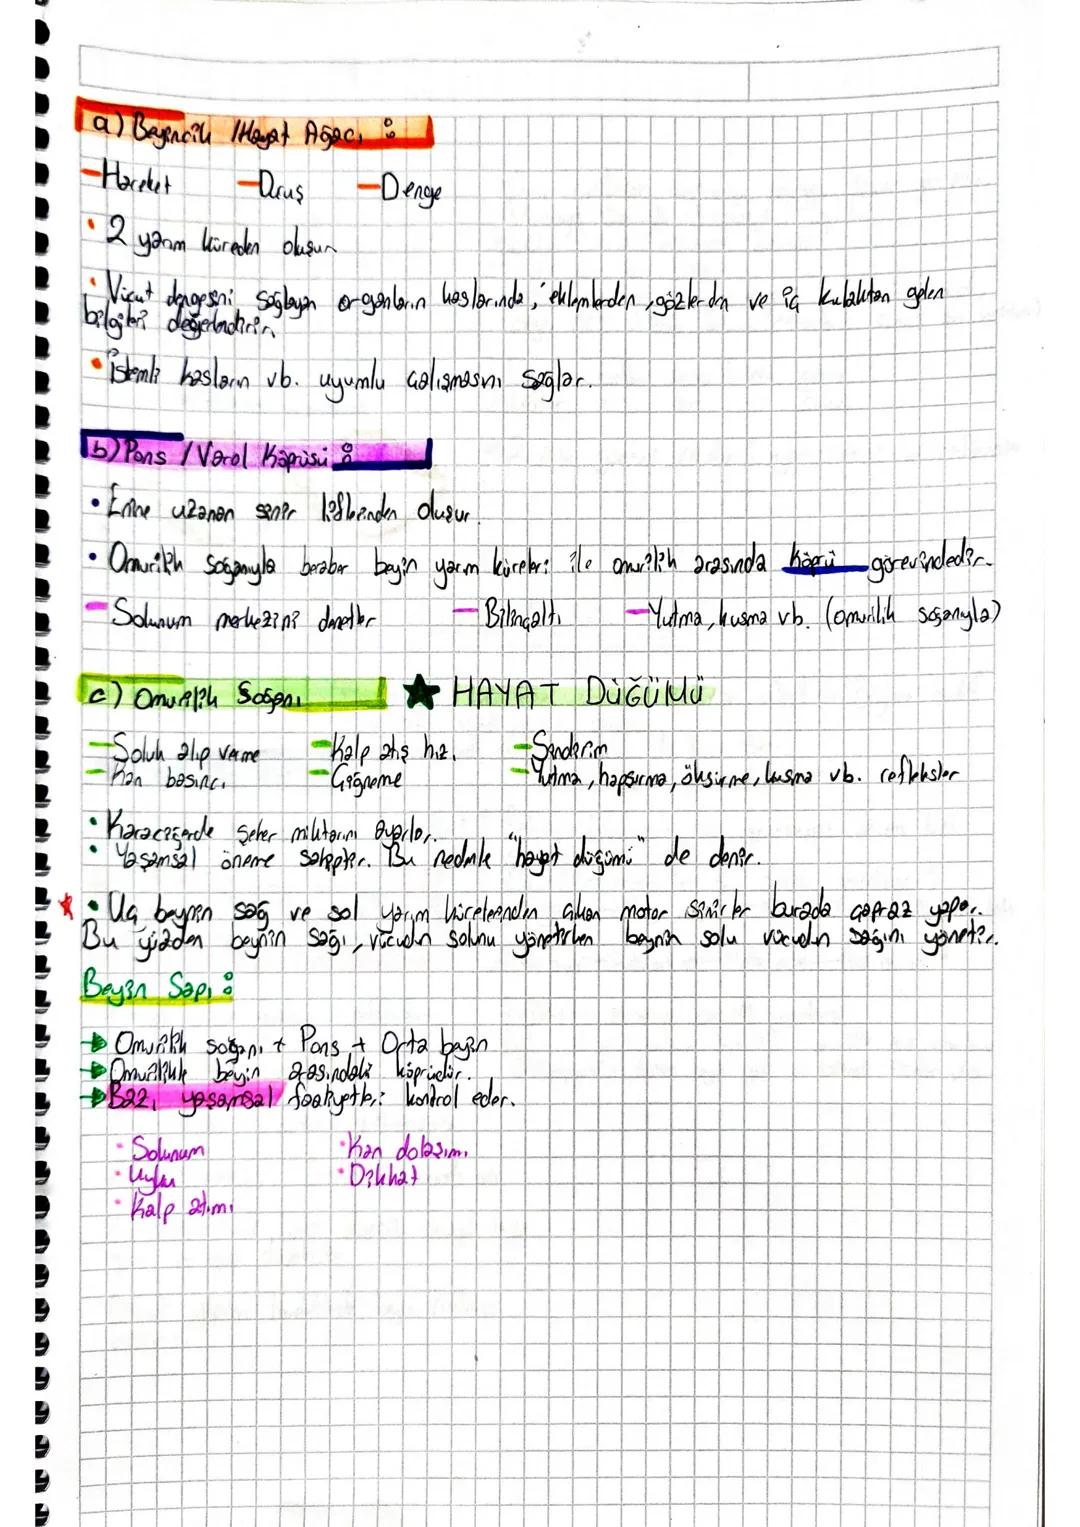 a) Beyincik / Hayat Ağacı :
- Hareket - Duruş - Denge
• 2 yarım küreden oluşur
• Vücut dengesini sağlayan organların kaslarında, eklemlerden, gözlerden ve iç kulaktan gelen
bilgileri değerlendirir.
• İstemli kasların vb. uyumlu çalışmasını sağlar.
b) Pons / Varol Köprüsü :
• Enine uzanan sinir liflerinden oluşur.
• Omurilik soğanıyla beraber beyin yarım küreleri ile omurilik arasında köprü görevindedir.
- Solunum merkezini denetler - Bilinçaltı - Yutma, kusma vb. (omurilik soğanıyla)
c) Omurilik Soğanı ★ HAYAT DÜĞÜMÜ
- Soluk alıp verme - Kalp atış hızı - Sindirim
- Kan basıncı - Çiğneme - Yutma, hapşırma, öksürme, kusma vb. refleksler
• Karaciğerde şeker miktarını ayarlar.
• Yaşamsal öneme sahiptir. Bu nedenle "hayat düğümü" de denir.
• Uç beynin sağ ve sol yarım kürelerinden çıkan motor sinirler burada çapraz yapar.
Bu yüzden beynin sağı, vücudun solunu yönetirken beynin solu vücudun sağını yönetir.
Beyin Sapı :
→ Omurilik soğanı + Pons + Orta beyin
→ Omurilikle beyin arasındaki köprüdür.
→ Bazı yaşamsal faaliyetleri kontrol eder.
• Solunum • Kan dolaşımı
• Uyku • Dikkat
• Kalp atımı